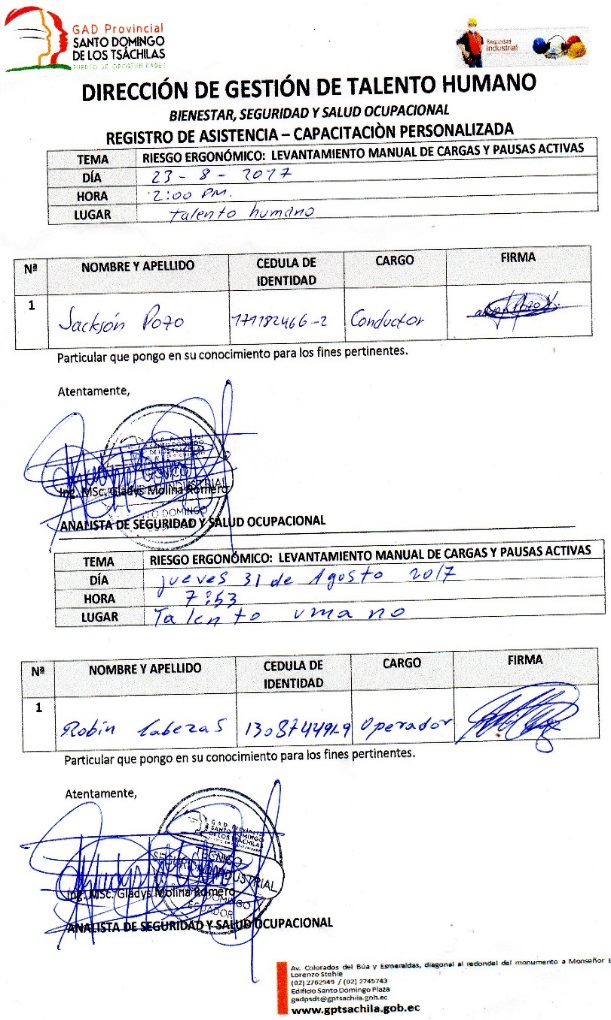 GAD Provincial
SANTO DOMINGO
DE LOS TSÁCHILAS
Seguridad
industrial
DIRECCIÓN DE GESTIÓN DE TALENTO HUMANO
BIENESTAR, SEGURIDAD Y SALUD OCUPACIONAL
REGISTRO DE ASISTENCIA – CAPACITACIÒN PERSONALIZADA
TEMA RIESGO ERGONÓMICO: LEVANTAMIENTO MANUAL DE CARGAS Y PAUSAS ACTIVAS
DÍA 23 - 8 - 2017
HORA 2:00 PM.
LUGAR Talento humano
Nª NOMBRE Y APELLIDO CEDULA DE IDENTIDAD CARGO FIRMA
1 Jackson Pozo 171182466-2 Conductor
Particular que pongo en su conocimiento para los fines pertinentes.
Atentamente,
Ing. MSc. Gladys Molina Romero
ANALISTA DE SEGURIDAD Y SALUD OCUPACIONAL
TEMA RIESGO ERGONÓMICO: LEVANTAMIENTO MANUAL DE CARGAS Y PAUSAS ACTIVAS
DÍA jueves 31 de Agosto 2017
HORA 7:53
LUGAR Talento umano
Nª NOMBRE Y APELLIDO CEDULA DE IDENTIDAD CARGO FIRMA
1 Robin Cabezas Operador
Particular que pongo en su conocimiento para los fines pertinentes.
Atentamente,
GAD Provincial
SANTO DOMINGO
DE LOS TSÁCHILAS
TECNICO
SEGURIDAD INDUSTRIAL
Ing. MSc. Gladys Molina Romero
ECUADOR
ANALISTA DE SEGURIDAD Y SALUD OCUPACIONAL
Av. Colorados del Búa y Esmeraldas, diagonal al redondel del monumento a Monseñor
Lorenzo Stehle
(02) 2762949 / (02) 2745743
Edificio Santo Domingo Plaza
gadpsdt@gptsachila.gob.ec
www.gptsachila.gob.ec